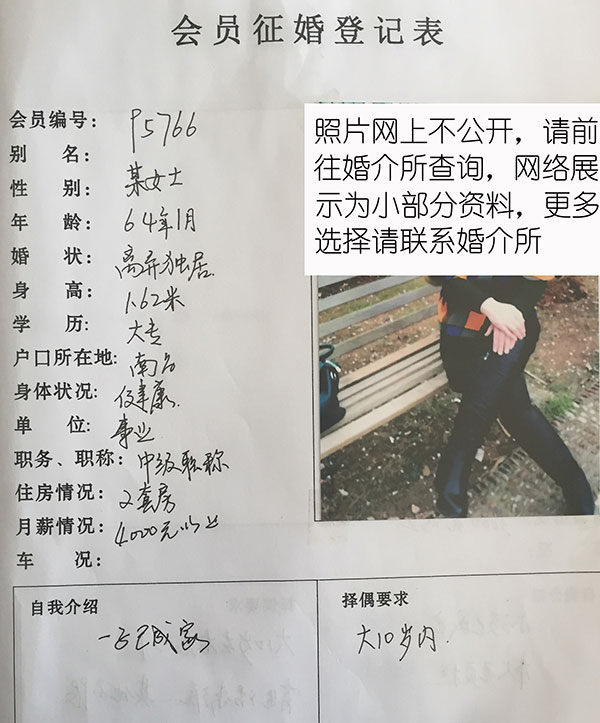 会员征婚登记表
会员编号: P5766
别 名: 某女士
性 别:
年 龄: 64年1月
婚 状: 离异独居
身 高: 1.62米
学 历: 大专
户口所在地: 南宁
身体状况: 健康
单 位: 事业
职务、职称: 中级职称
住房情况: 2套房
月薪情况: 4000元以上
车 况:
照片网上不公开，请前
往婚介所查询，网络展
示为小部分资料，更多
选择请联系婚介所
自我介绍
一子已成家
择偶要求
大10岁内.